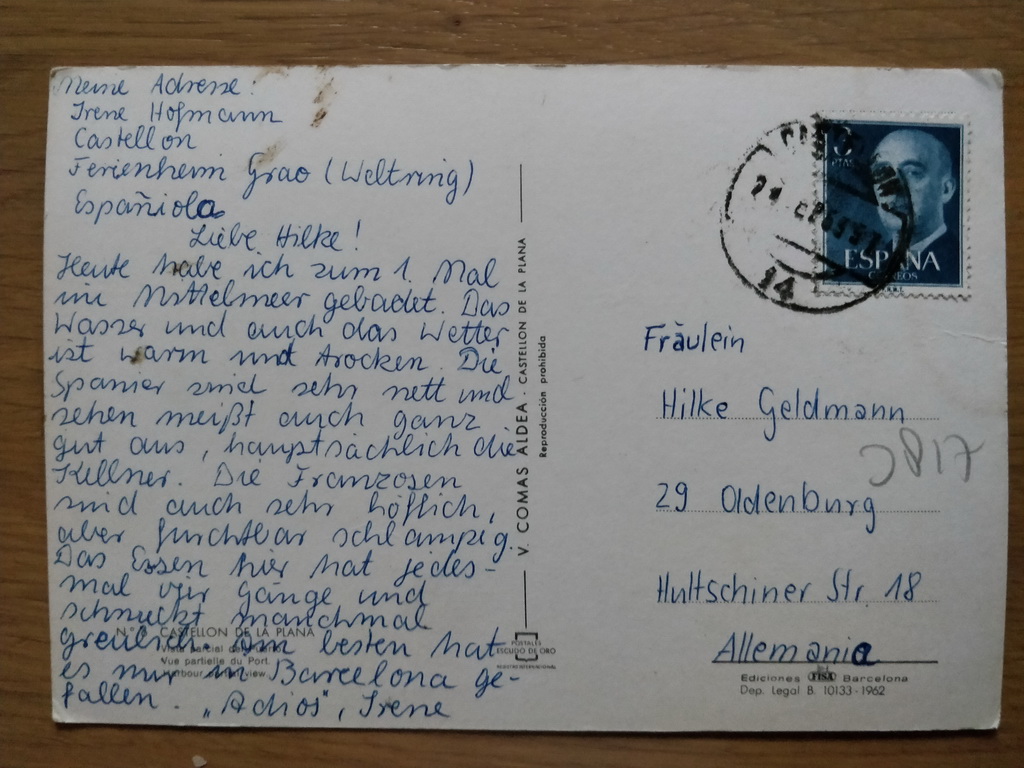 Meine Adresse:
Irene Hofmann
Castellon
Ferienheim Grao (Weltring)
Españiola
Liebe Hilke!
Heute habe ich zum 1. Mal
im Mittelmeer gebadet. Das
Wasser und auch das Wetter
ist warm und trocken. Die
Spanier sind sehr nett und
sehen meißt auch ganz
gut aus, hauptsächlich die
Kellner. Die Franzosen
sind auch sehr höflich,
aber furchtbar schlampig.
Das Essen hier hat jedes-
mal vier Gänge und
schmeckt manchmal
greulich. Am besten hat
es mir in Barcelona ge-
fallen. "Adios", Irene
CASTELLON DE LA PLANA
Vue partielle du Port.
V. COMAS ALDEA - CASTELLON DE LA PLANA
Reproducción prohibida
POSTALES
ESCUDO DE ORO
PTAS
ESPAÑA
CORREOS
14
Fräulein
Hilke Geldmann
2817
29 Oldenburg
Hultschiner Str. 18
Allemania
Ediciones FISA Barcelona
Dep. Legal B. 10133-1962